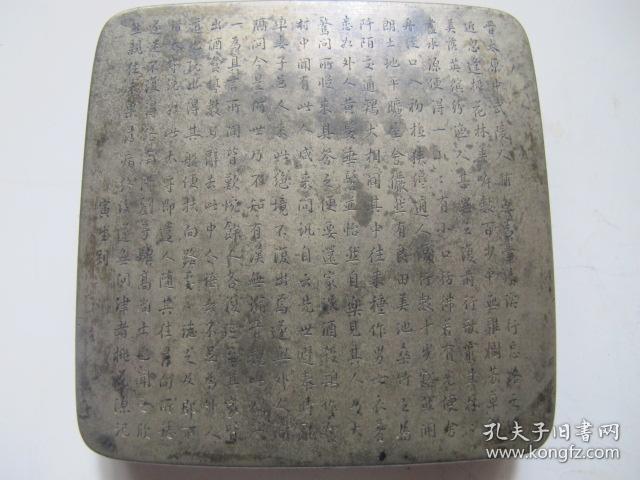 晉太原中武陵人捕魚為業緣溪行忘路之
近忽逢桃花林夾岸數百步中無雜樹芳草
美落英繽紛漁人甚異之復前行欲窮其林
盡水源便得一山山有小口彷彿若有光便舍
舟從口入初極狹纔通人復行數十步豁然開
朗土地平曠屋舍儼然有良田美池桑竹之屬
阡陌交通鷄犬相聞其中往來種作男女衣著
悉如外人黃髮垂髫並怡然自樂見漁人乃大
驚問所從來具答之便要還家設酒殺鷄作食
村中聞有此人咸來問訊自云先世避秦時亂
率妻子邑人來此絕境不復出焉遂與外人間
隔問今是何世乃不知有漢無論魏晉此人
一為具言所聞皆歎惋餘人各復延至其家皆
出酒食停數日辭去此中人語云不足為外人
道也既出得其船便扶向路處處誌之及郡下
詣太守說如此太守即遣人隨其往尋向所誌
遂迷不復得路南陽劉子驥高尚士也聞之欣
然親往未果尋病終後遂無問津者桃花源記
寅生刻
孔夫子旧书网
www.kongfz.com